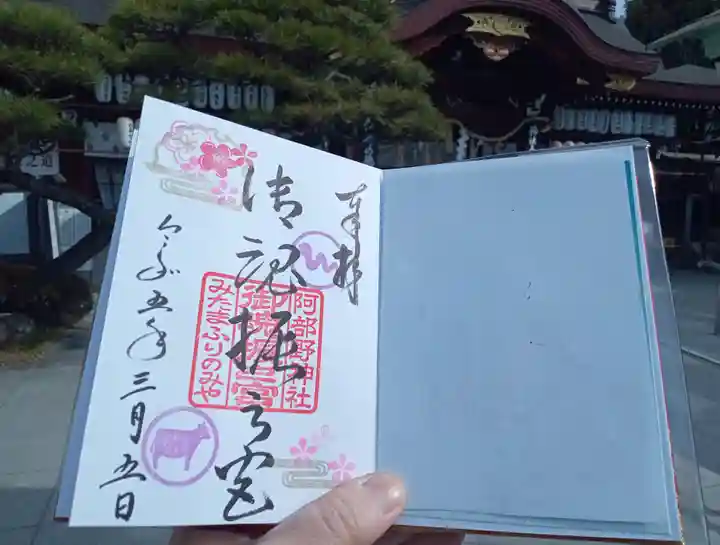 奉拝
御魂振之宮
阿部野神社
御魂振之宮
みたまふりのみや
令和五年三月五日